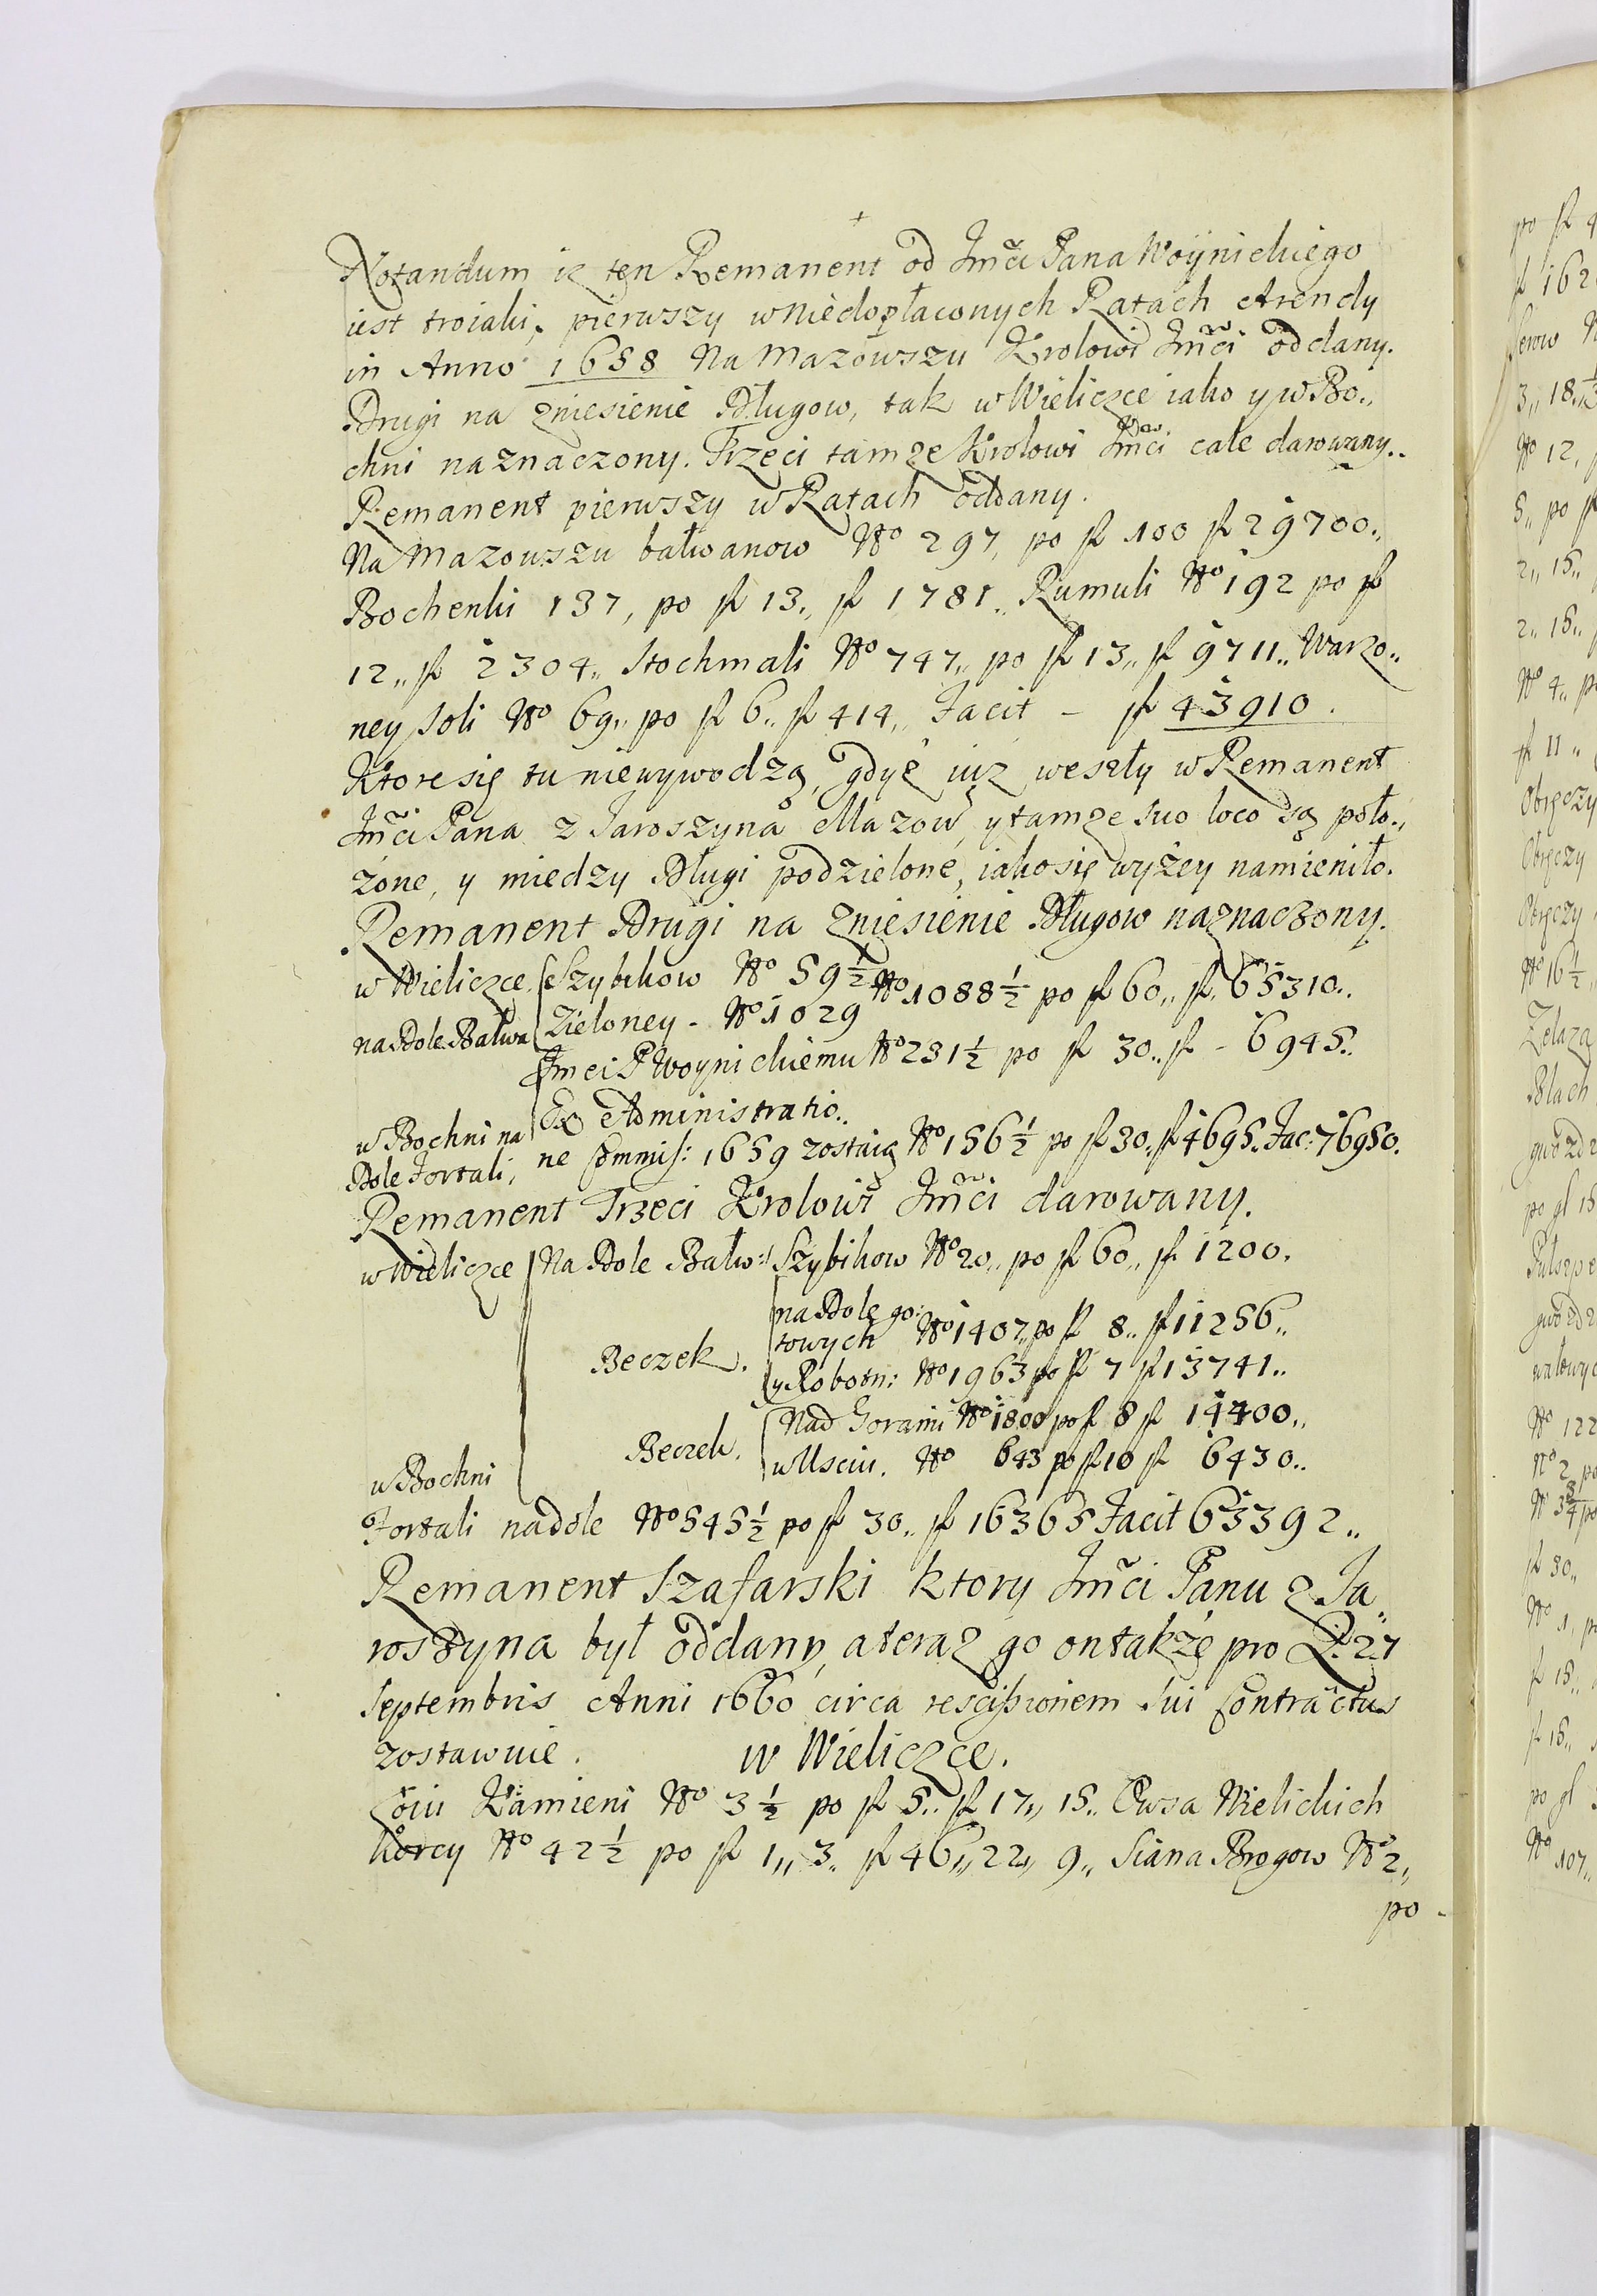 Notandum iz ten Remanent od Jmci Pana Woynickiego
iest troiaki, pierwszy w Niedopłaconych Ratach Arendy
in Anno 1658 Na Mazowszu Krolowi Jmci oddany.
Drugi na zniesienie Długow, tak w Wieliczce iako y w Bo„
chni naznaczony. Trzeci tamze Krolowi Jmci cale darowany..
Remanent pierwszy w Ratach oddany.
Na Mazowszu bałwanow No 297, po fl 100 fl 29700„
Bochenki 137, po fl 13„ fl 1781„ Rumuli No 192 po fl
12„ fl 2304„ Stochmali No 747„ po fl 13„ fl 9711„ Warzo„
ney soli No 69„ po fl 6„ fl 414„ Facit – fl 43910.
Ktore się tu niewywodzą, gdyż iuz weszły w Remanent
Jmci Pana z Jaroszyna Mazow, y tamze suo loco są poło„
żone, y miedzy Długi podzielone, iako się wyżey namieniło.
Remanent Drugi na zniesienie Długow naznaczony.
w Wieliczce Szybikow No 59½ No 1088½ po fl 60„ fl. 65310..
na Dole Bałwa Zieloney - No 1029
Jmci P Woynickiemu No 231½ po fl 30„ fl - 6945..
Ex Administratio„
w Bochni na ne Commiss: 1659 zostaią No 156½ po fl 30. fl 4695. Fac: 76950.
Dole Fortali,
Remanent Trzeci Krolowi Jmci darowany.
w Wieliczce Na Dole Bałw: Szybikow No 20„ po fl 60„ fl 1200.
na Dole go:
Beczek. towych No 1407„ po fl 8„ fl 11256„
y Robotn: No 1963 po fl 7 fl 13741„
Nad Gorami No 1800 po fl 8 fl 14400„
Beczek. w Usciu. No 643 po fl 10 fl 6430„
w Bochni
Fortali na dole No 545½ po fl 30„ fl 16365 Facit 63392„
Remanent Szafarski ktory Jmci Panu z Ja„
roszyna był oddany, a teraz go on także pro D. 27
Septembris Anni 1660 circa rescissionem sui Contractus
zostawuie. w Wieliczce.
Łoiu Kamieni No 3½ po fl 5„ fl 17„ 15„ Owsa Wielickich
korcy No 42½ po fl 1„ 3„ fl 46„ 22„ 9„ Siana Brogow No 2„
po -